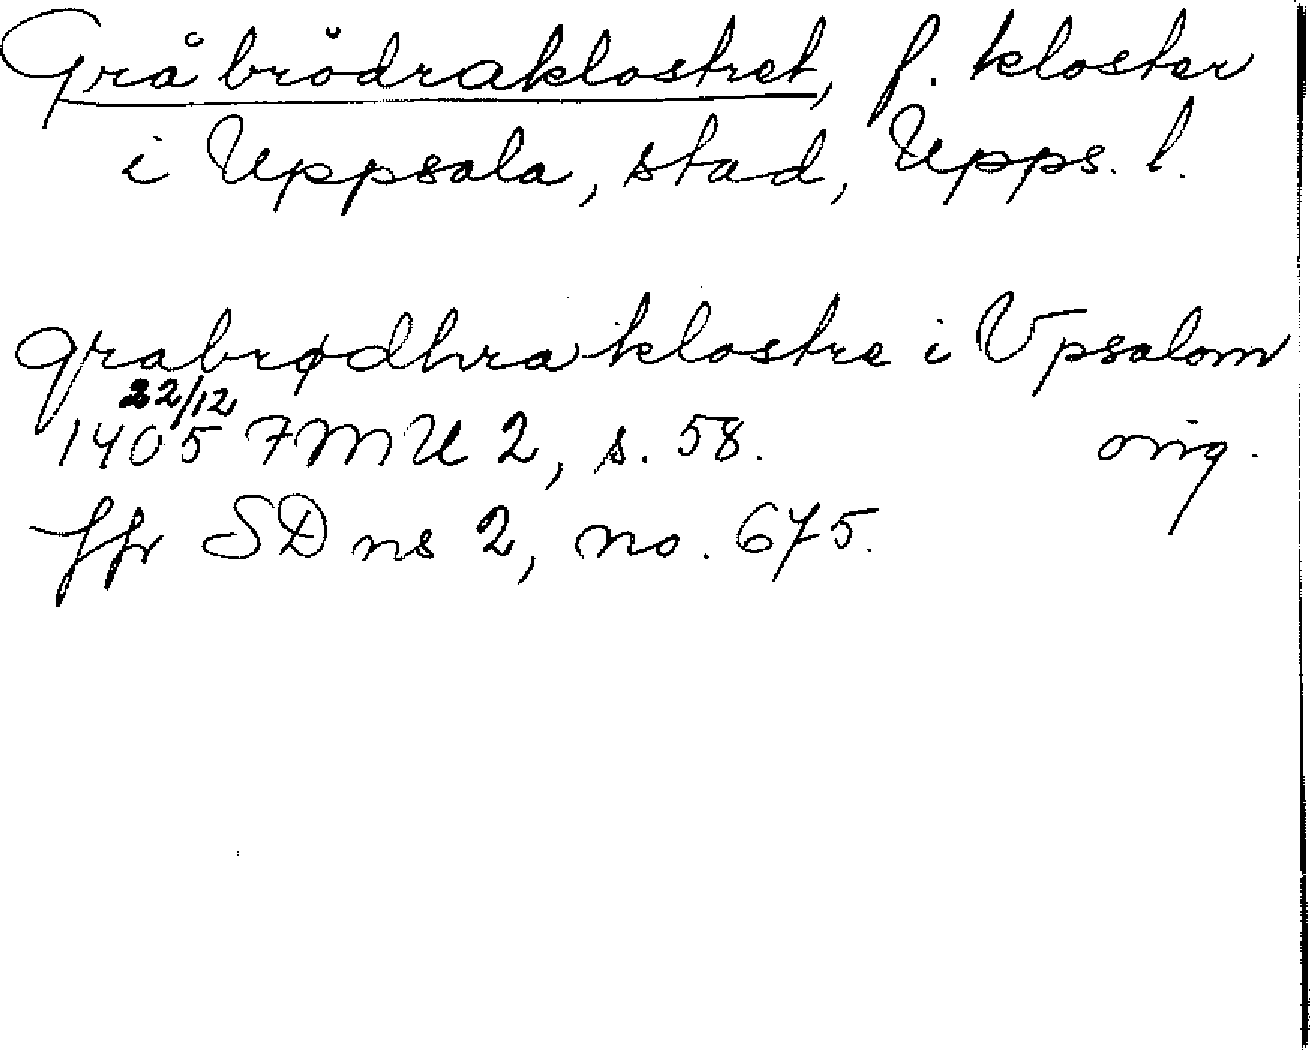 Gråbrödraklostret, f. kloster
i Uppsala, stad, Upps. l.
grabrødhra klostre i Vpsalom
22/12
1405 FMU 2, s. 58. orig.
Jfr SD ns 2, no. 675.